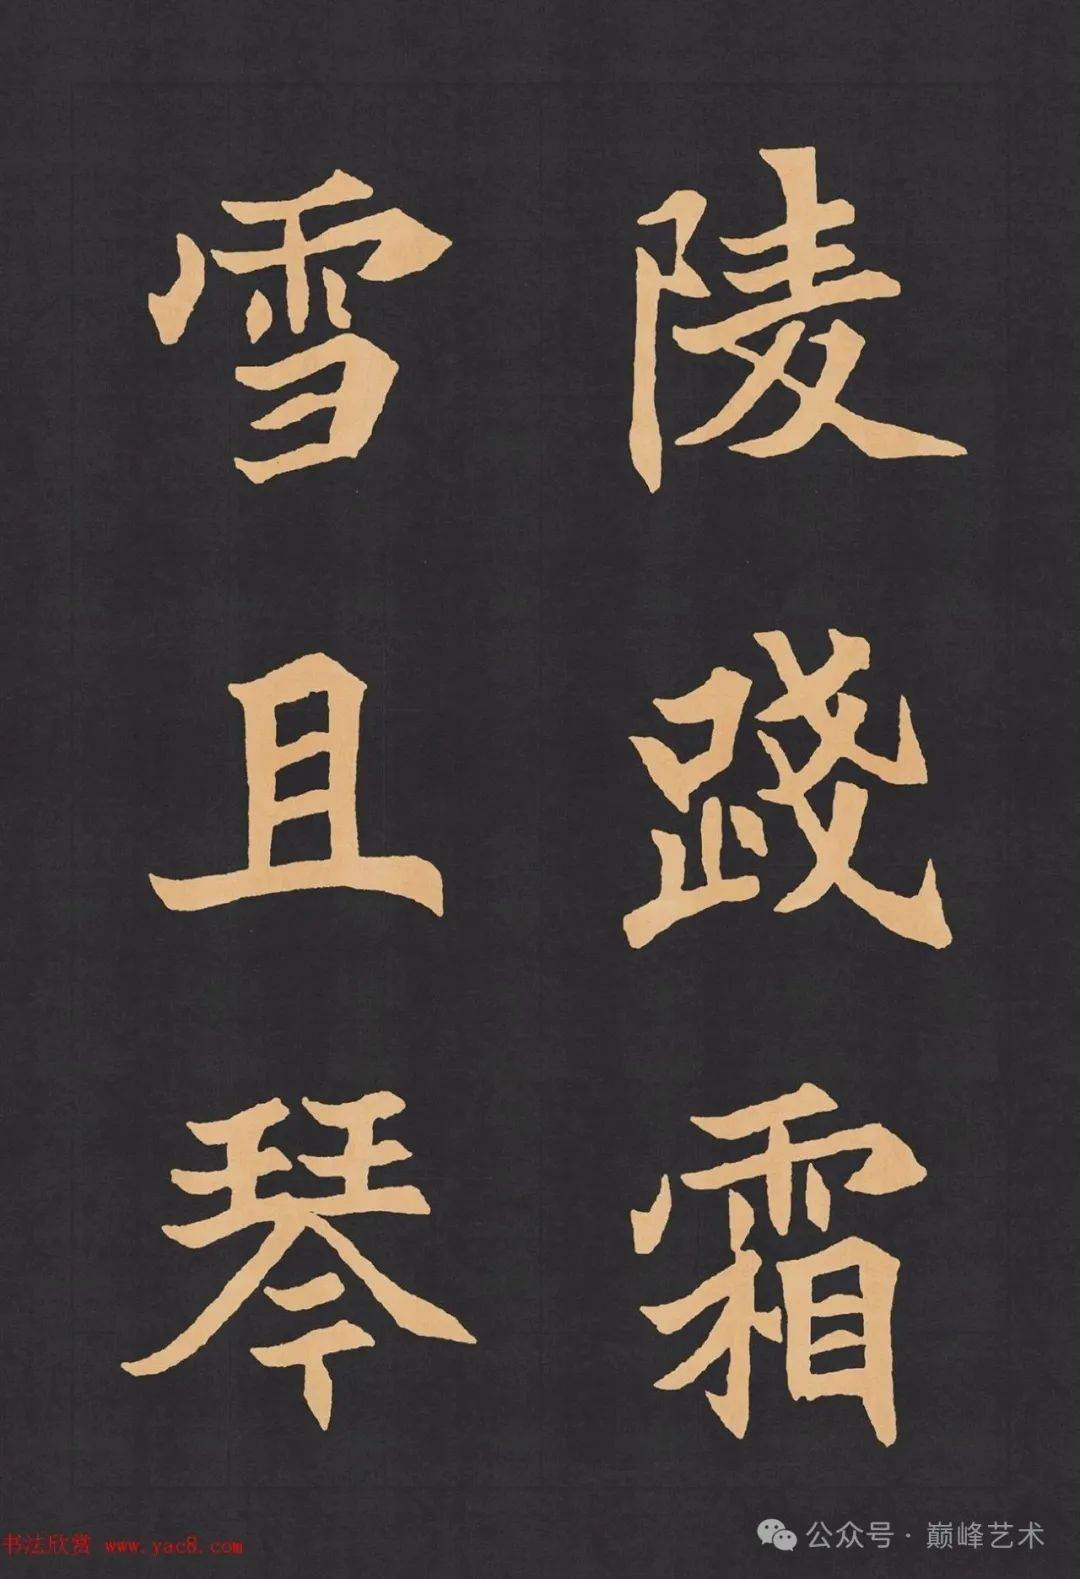 陵踐霜
雪且琴
书法欣赏 www.yac8.com
公众号·巅峰艺术